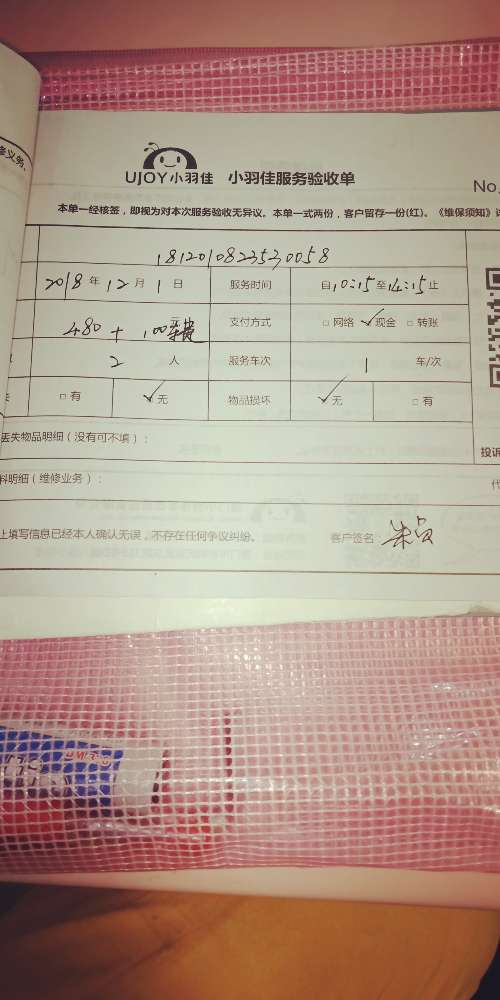 修义务、
UJOY小羽佳 小羽佳服务验收单
No.
本单一经核签，即视为对本次服务验收无异议。本单一式两份，客户留存一份(红)。《维保须知》
1812010823530058
2018 年 12 月 1 日 服务时间 自10:15至14:15止
480 + 100车费 元 支付方式 □网络 ✓现金 □转账
2 人 服务车次 1 车/次
□有 ✓无 物品损坏 ✓无 □有
丢失物品明细（没有可不填）：
投诉
料明细（维修业务）：
代
上填写信息已经本人确认无误，不存在任何争议纠纷。 客户签名